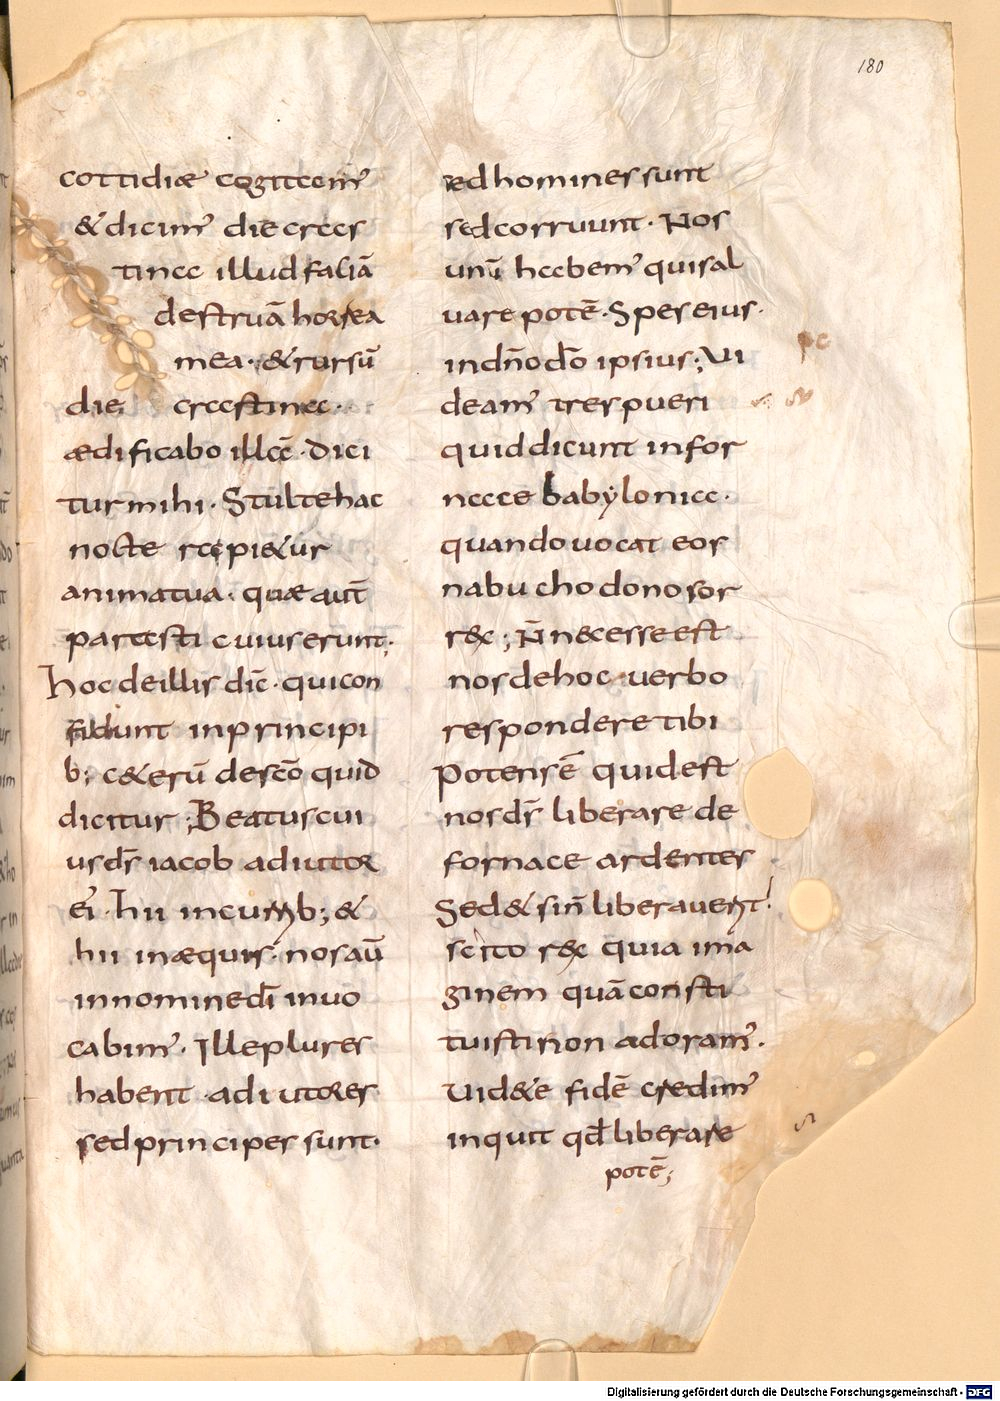 180
cottidiæ cogitam᾽
& dicim᾽ die cras
tina illud faciā
destruā horrea
mea · & rursū
die crastina ·
ædificabo illā · dici
tur mihi · Stulte hac
nocte rapi&ur
anima tua · quæ aut̄
parasti cuius erunt ·;
hoc de illis dic̄ · qui con
fidunt in principi
b; c&erū de sc̄o quid
dicitur ; Beatus cui
us d̄s iacob adiutor
ei᾽ · hii in currib; &
hii in æquis · nos aū
in nomine dī inuo
cabim᾽ · Ille plures
habent · adiutores
sed principes sunt ·
ædhomines sunt
sed corruunt · Nos
unū habem᾽ qui sal
uare potē · Spes eius ·
in dn̄o dō ipsius ; Vi
deam᾽ tres pueri
quid dicunt in for
nace babylonica ·
quando uocat eos
nabuchodonosor
r&x ; N̄ n&cesse est
nos de hoc uerbo
respondere tibi
Potens ē quid est
nos d̄s liberare de
fornace ardentes
Sed & si n̄ liberauerit
scito r&x quia ima
ginem quā consti
tuisti non adoram᾽ ·
Uid&e fidē credim᾽
inquit qđ liberare
potē ;
Digitalisierung gefördert durch die Deutsche Forschungsgemeinschaft - DFG